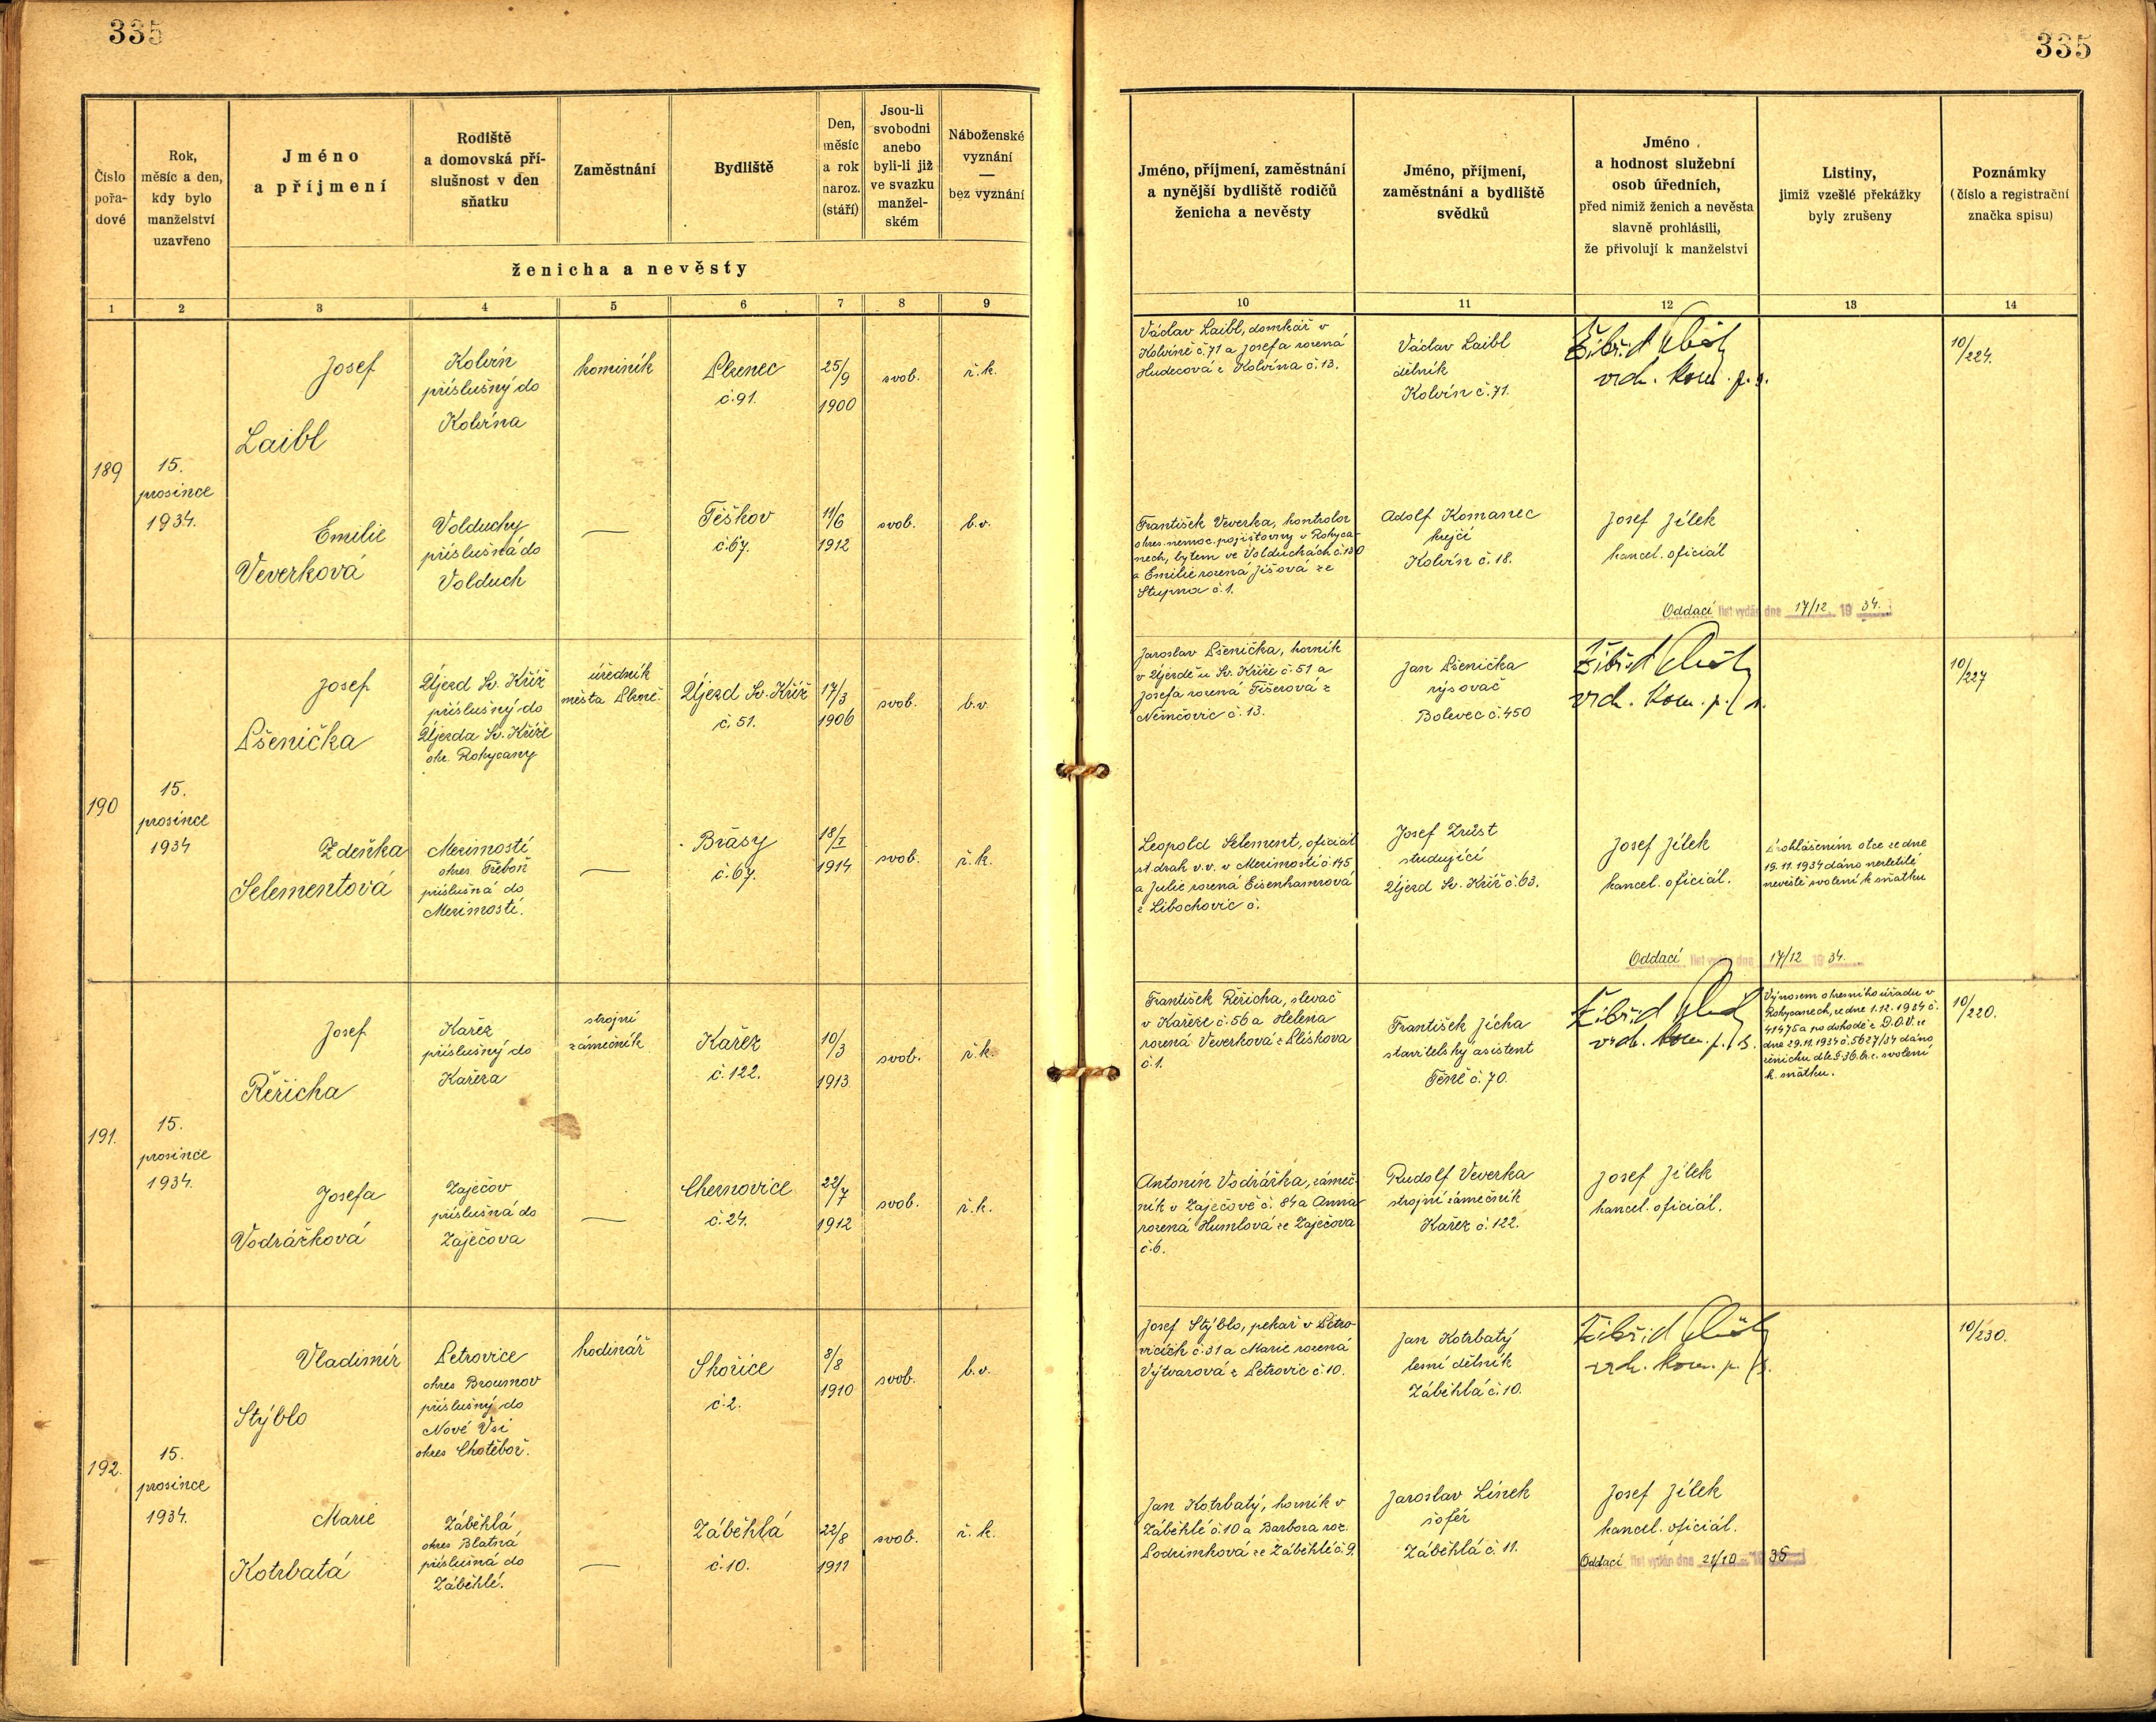 335
335
Číslo pořadové
Rok, měsíc a den, kdy bylo manželství uzavřeno
Jméno a příjmení
Rodiště a domovská příslušnost v den sňatku
Zaměstnání
Bydliště
Den, měsíc a rok naroz. (stáří)
Jsou-li svobodni anebo byli-li již ve svazku manželském
Náboženské vyznání — bez vyznání
ženicha a nevěsty
Jméno, příjmení, zaměstnání a nynější bydliště rodičů ženicha a nevěsty
Jméno, příjmení, zaměstnání a bydliště svědků
Jméno a hodnost služební osob úředních, před nimiž ženich a nevěsta slavně prohlásili, že přivolují k manželství
Listiny, jimiž vzešlé překážky byly zrušeny
Poznámky (číslo a registrační značka spisu)
1 2 3 4 5 6 7 8 9 10 11 12 13 14
189
15.
prosince
1934.
Josef
Laibl
Kolvín
příslušný do
Kolvína
kominík
Plzenec
č. 91.
25/9
1900
svob.
ř. k.
Václav Laibl, domkář v
Kolvíně č. 71 a Josefa rozená
Hudecová z Kolvína č. 13.
Václav Laibl
dělník
Kolvín č. 71.
vrch. kom. p. s.
10/224.
Emilie
Veverková
Volduchy
příslušná do
Volduch
—
Těškov
č. 67.
11/6
1912
svob.
b. v.
František Veverka, kontrolor
okres. nemoc. pojišťovny v Rokyca-
nech, bytem ve Volduchách č. 130
a Emilie rozená Jíšová ze
Stupna č. 1.
Adolf Komanec
krejčí
Kolvín č. 18.
Josef Jílek
kancel. oficiál
Oddací list vydán dne 17/12 1934.
190
15.
prosince
1934
Josef
Pšenička
Újezd Sv. Kříž
příslušný do
Újezda Sv. Kříže
okr. Rokycany
úředník
města Plzně.
Újezd Sv. Kříž
č. 51.
17/3
1906
svob.
b. v.
Jaroslav Pšenička, horník
v Újezdě u Sv. Kříže č. 51 a
Josefa rozená Fišerová z
Němčovic č. 13.
Jan Pšenička
rýsovač
Bolevec č. 450
vrch. kom. p. s.
10/227
Zdeňka
Selementová
Mezimostí
okres Třeboň
příslušná do
Mezimostí.
—
Břasy
č. 67.
18/I
1914
svob.
ř. k.
Leopold Selement, oficiál
st. drah v. v. v Mezimostí č. 145
a Julie rozená Eisenhamrová
z Libochovic č.
Josef Zrůst
studující
Újezd Sv. Kříž č. 63.
Josef Jílek
kancel. oficiál.
Prohlášením otce ze dne
19. 11. 1934 dáno nezletilé
nevěstě svolení k sňatku
Oddací list vydán dne 17/12 1934.
191.
15.
prosince
1934.
Josef
Řeřicha
Kařez
příslušný do
Kařeza
strojní
zámečník
Kařez
č. 122.
10/3
1913.
svob.
ř. k.
František Řeřicha, slevač
v Kařeze č. 56 a Helena
rozená Veverková z Plískova
č. 1.
František Jícha
stavitelský asistent
Těně č. 70.
vrch. kom. p. s.
Výnosem okresního úřadu v
Rokycanech, ze dne 1. 12. 1934 č.
41475 a po dohodě s D. O. V. ze
dne 29. 11. 1934 č. 5627/34 dáno
ženichu dle § 36 b. z. svolení
k. sňatku.
10/220.
Josefa
Vodrážková
Zaječov
příslušná do
Zaječova
—
Cheznovice
č. 24.
22/7
1912
svob.
ř. k.
Antonín Vodrážka, zámeč-
ník v Zaječově č. 84 a Anna
rozená Humlová ze Zaječova
č. 6.
Rudolf Veverka
strojní zámečník
Kařez č. 122.
Josef Jílek
kancel. oficiál.
192.
15.
prosince
1934.
Vladimír
Stýblo
Petrovice
okres Broumov
příslušný do
Nové Vsi
okres Chotěboř.
hodinář
Skořice
č. 2.
8/8
1910
svob.
b. v.
Josef Stýblo, pekař v Petro-
vicích č. 31 a Marie rozená
Výtvarová z Petrovic č. 10.
Jan Kotrbatý
lesní dělník
Záběhlá č. 10.
vrch. kom. p. s.
10/230.
Marie
Kotrbatá
Záběhlá
okres Blatná
příslušná do
Záběhlé.
—
Záběhlá
č. 10.
22/8
1911
svob.
ř. k.
Jan Kotrbatý, horník v
Záběhlé č. 10 a Barbora roz.
Podzimková ze Záběhlé č. 9.
Jaroslav Línek
šofér
Záběhlá č. 11.
Josef Jílek
kancel. oficiál.
Oddací list vydán dne 21/10 1935